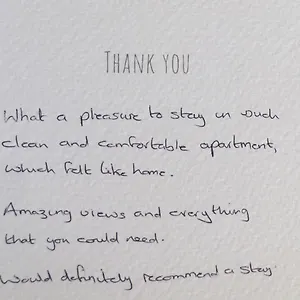 THANK YOU
What a pleasure to stay in such
clean and comfortable apartment,
which felt like home.
Amazing views and everything
that you could need.
Would definitely recommend a stay.